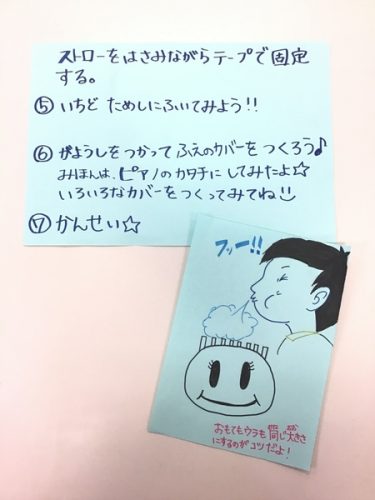 ストローをはさみながらテープで固定
する。
⑤ いちど ためしにふいてみよう!!
⑥ がようしをつかって ふえのカバーをつくろう♪
みほんは、ピアノのカタチに してみたよ☆
いろいろなカバーをつくってみてね
⑦ かんせい☆
フッー!!
おもてもウラも同じ大きさ
にするのがコツだよ!